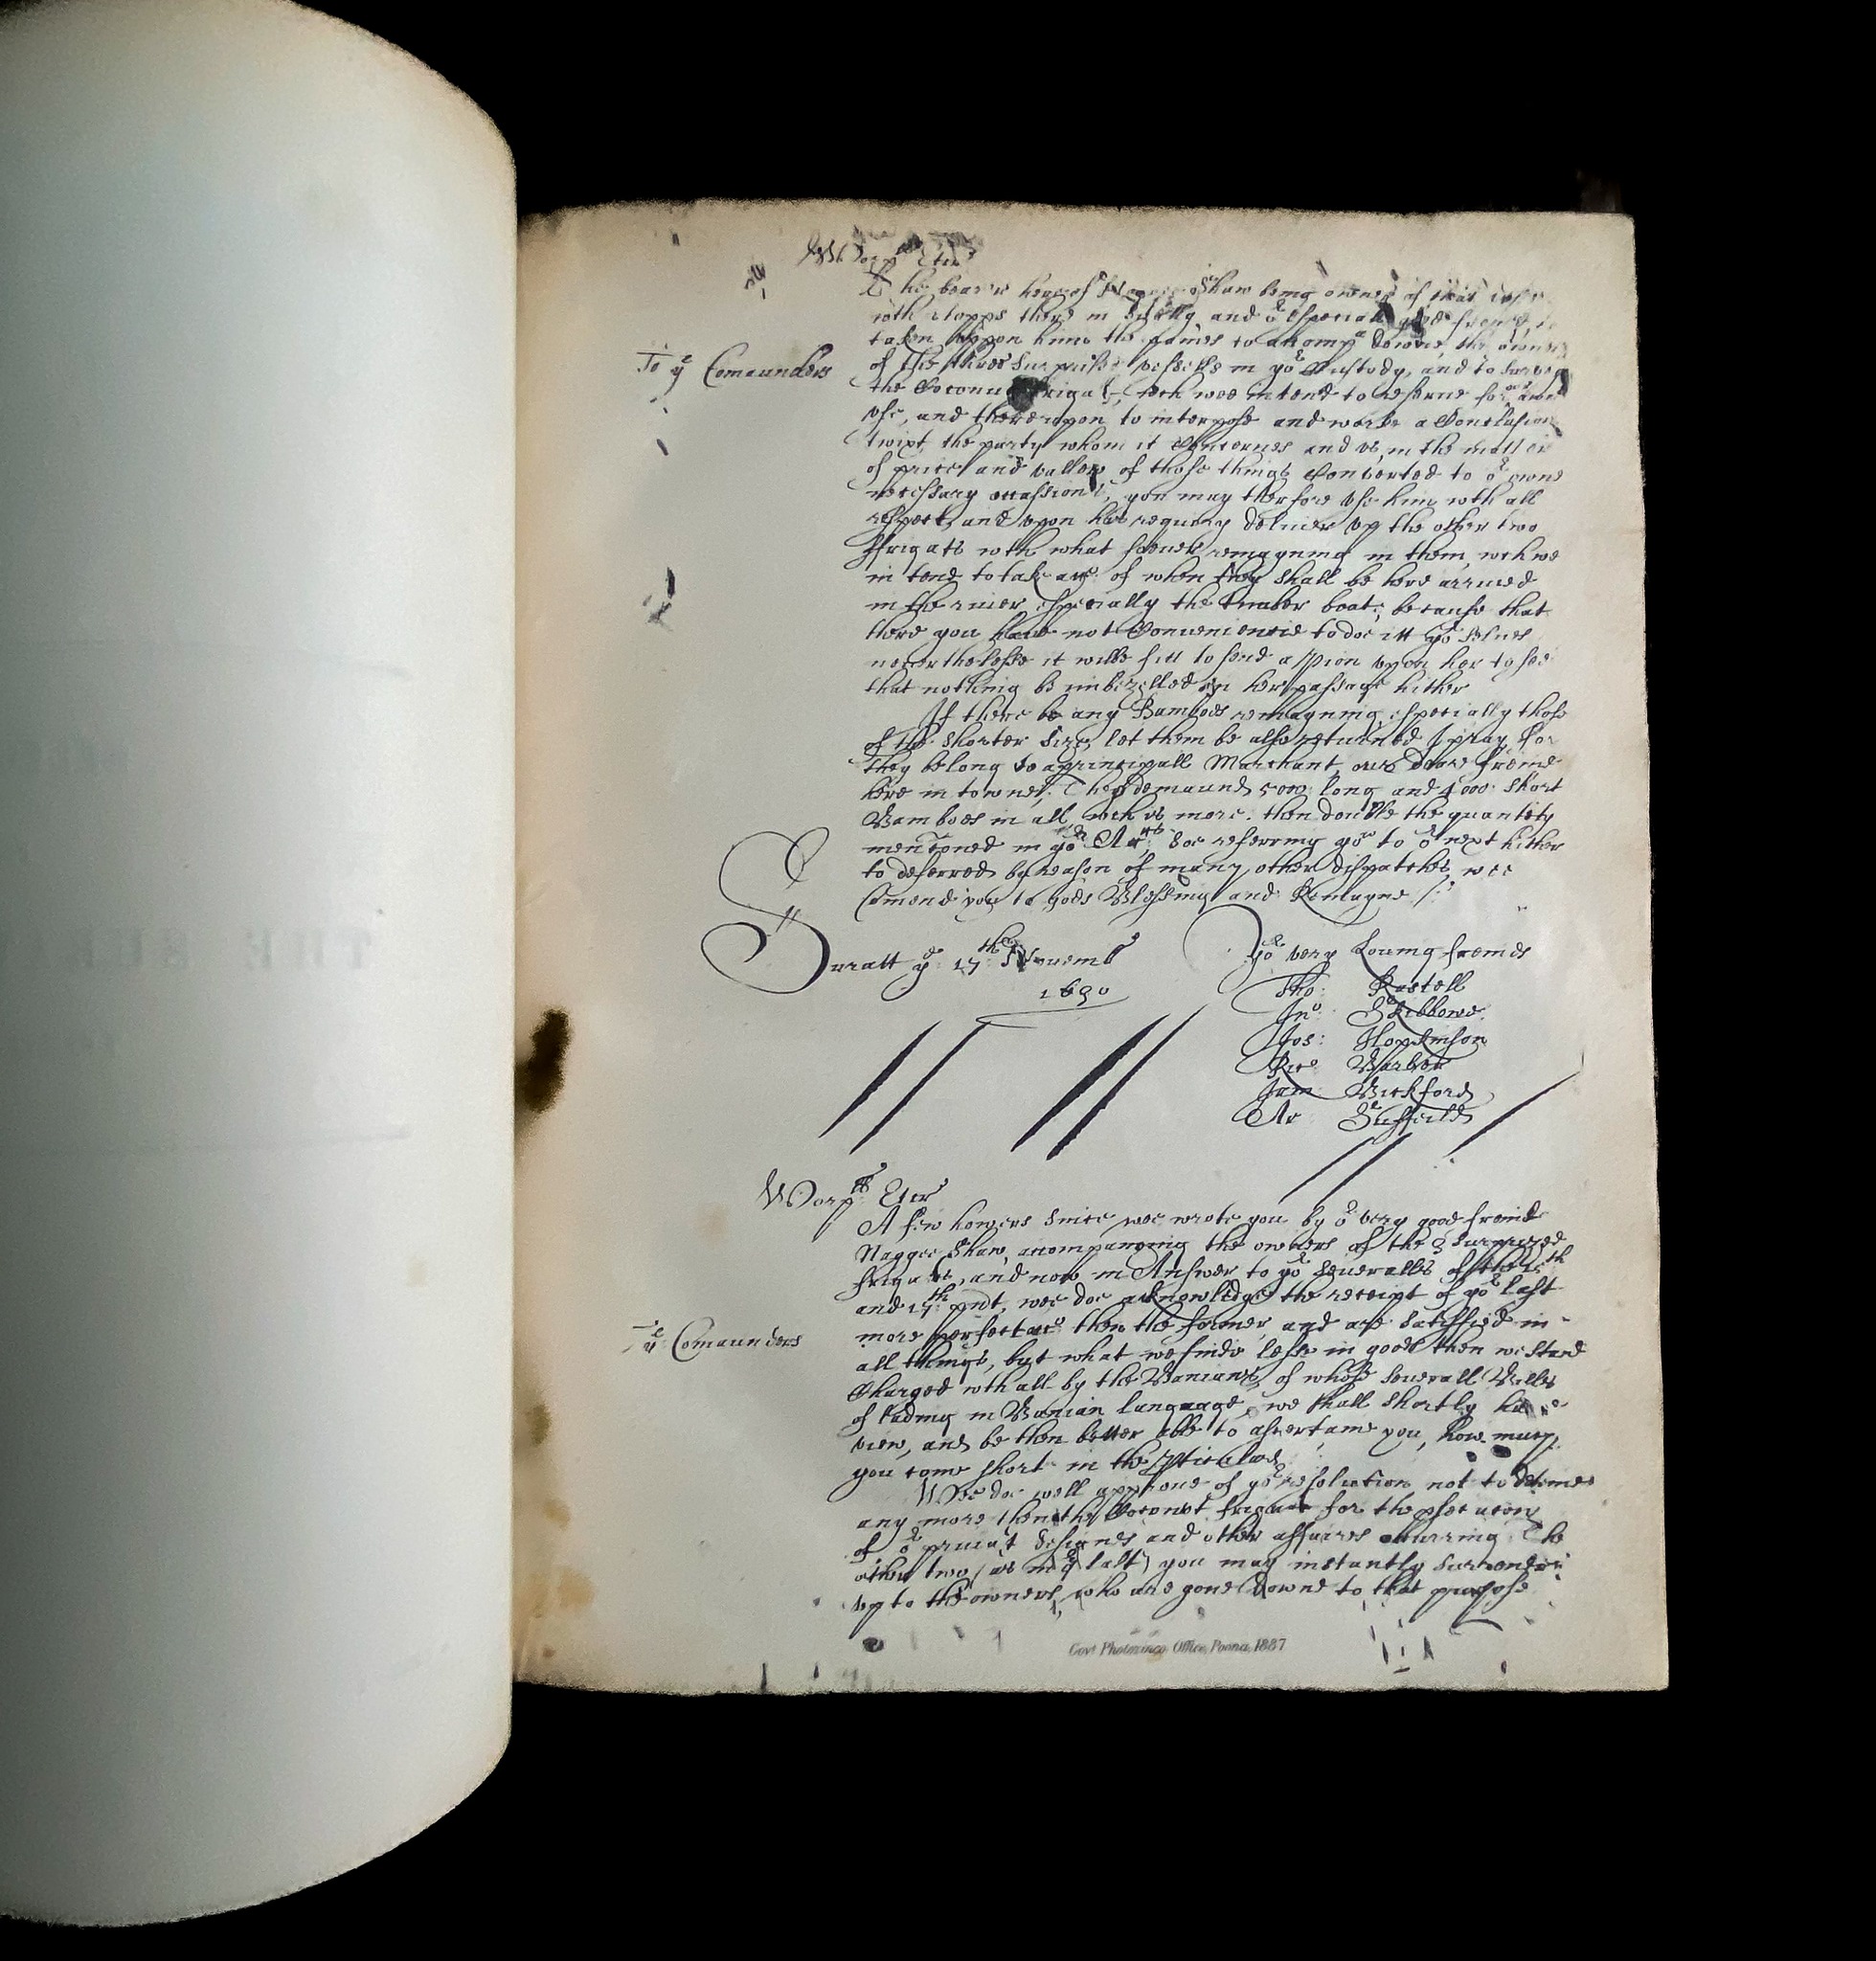 Worp^ll etc^rs
The bearer hereof Shaw being owner of that
with stopps there in and o^r especiall good freind,
taken uppon him the paines to acomp^a downe the owners
To y^e Comaunders
of the three surprised vessells in yo^r Custody, and to survey
the Coconut frigat, wch wee intend to reserve for our owne
use, and thereupon to interpose and worke a Conclusion
twixt the party whom it Concernes and us, in the matter
of price and vallew of those things Converted to o^r owne
necessary occassions, you may therfore use him wth all
respect, and upon his requiry deliver up the other two
ffrigats wth what soever remayning in them, wch we
intend to take of when they shall be here arrived
in the river, especially the timber boat, because that
there you have not Convenience to doe itt yo^r selves
neverthelesse it wilbe fitt to send a spion upon her to see
that nothing be imbezelled in her passage hither
If there be any Bamboes remayning, especially those
of the shorter size, let them be also returned I pray, for
they belong to a principall Marchant, our deare freind
here in towne; They demaund 5000: long and 4000: short
Bamboes in all, wch is more: then double the quantity
mentioned in yo^r soe referring yo^w to o^r next hither
to deferred by reason of many other dispatches, wee
Comend you to Gods Blessing and Remayne /:
Suratt y^e: 17^th: Novemb^r
1630
Yo^r very Loving freinds
Tho: Rastell
Jn^o: Skibbowe
Jos: Hopkinson
Ric^o: Barber
Jam: Bickford
Ar: Suffeild
Worp^ll Etc^rs
A few howers since, wee wrote you by o^r very good freind
Naggee Shaw, acompaneing the owners of the 3 surprized
frigatts, and now in Answer to yo^r severalls of the 15^th
and 17^th: p^nt, wee doe acknowledge the receipt of yo^r last
To y^e Comaunders
more then the former, and are satisfied in
all things, but what we finde lesse in goods then we stand
Charged wth all by the Banians, of whose severall Billes
of lading in Banian language, we shall shortly have
view, and be then better able to assertaine you, how much
you come short in the pticulars
Wee doe well approve of yo^r resolution not to deteine
any more then the Coconut frigatt for the psecution
of o^r privat designes and other affaires occurring. The
other two, (as in o^r last) you may instantly surrender
up to the owners, who are gone downe to that purpose
Govt Photozinco. Office, Poona, 1887